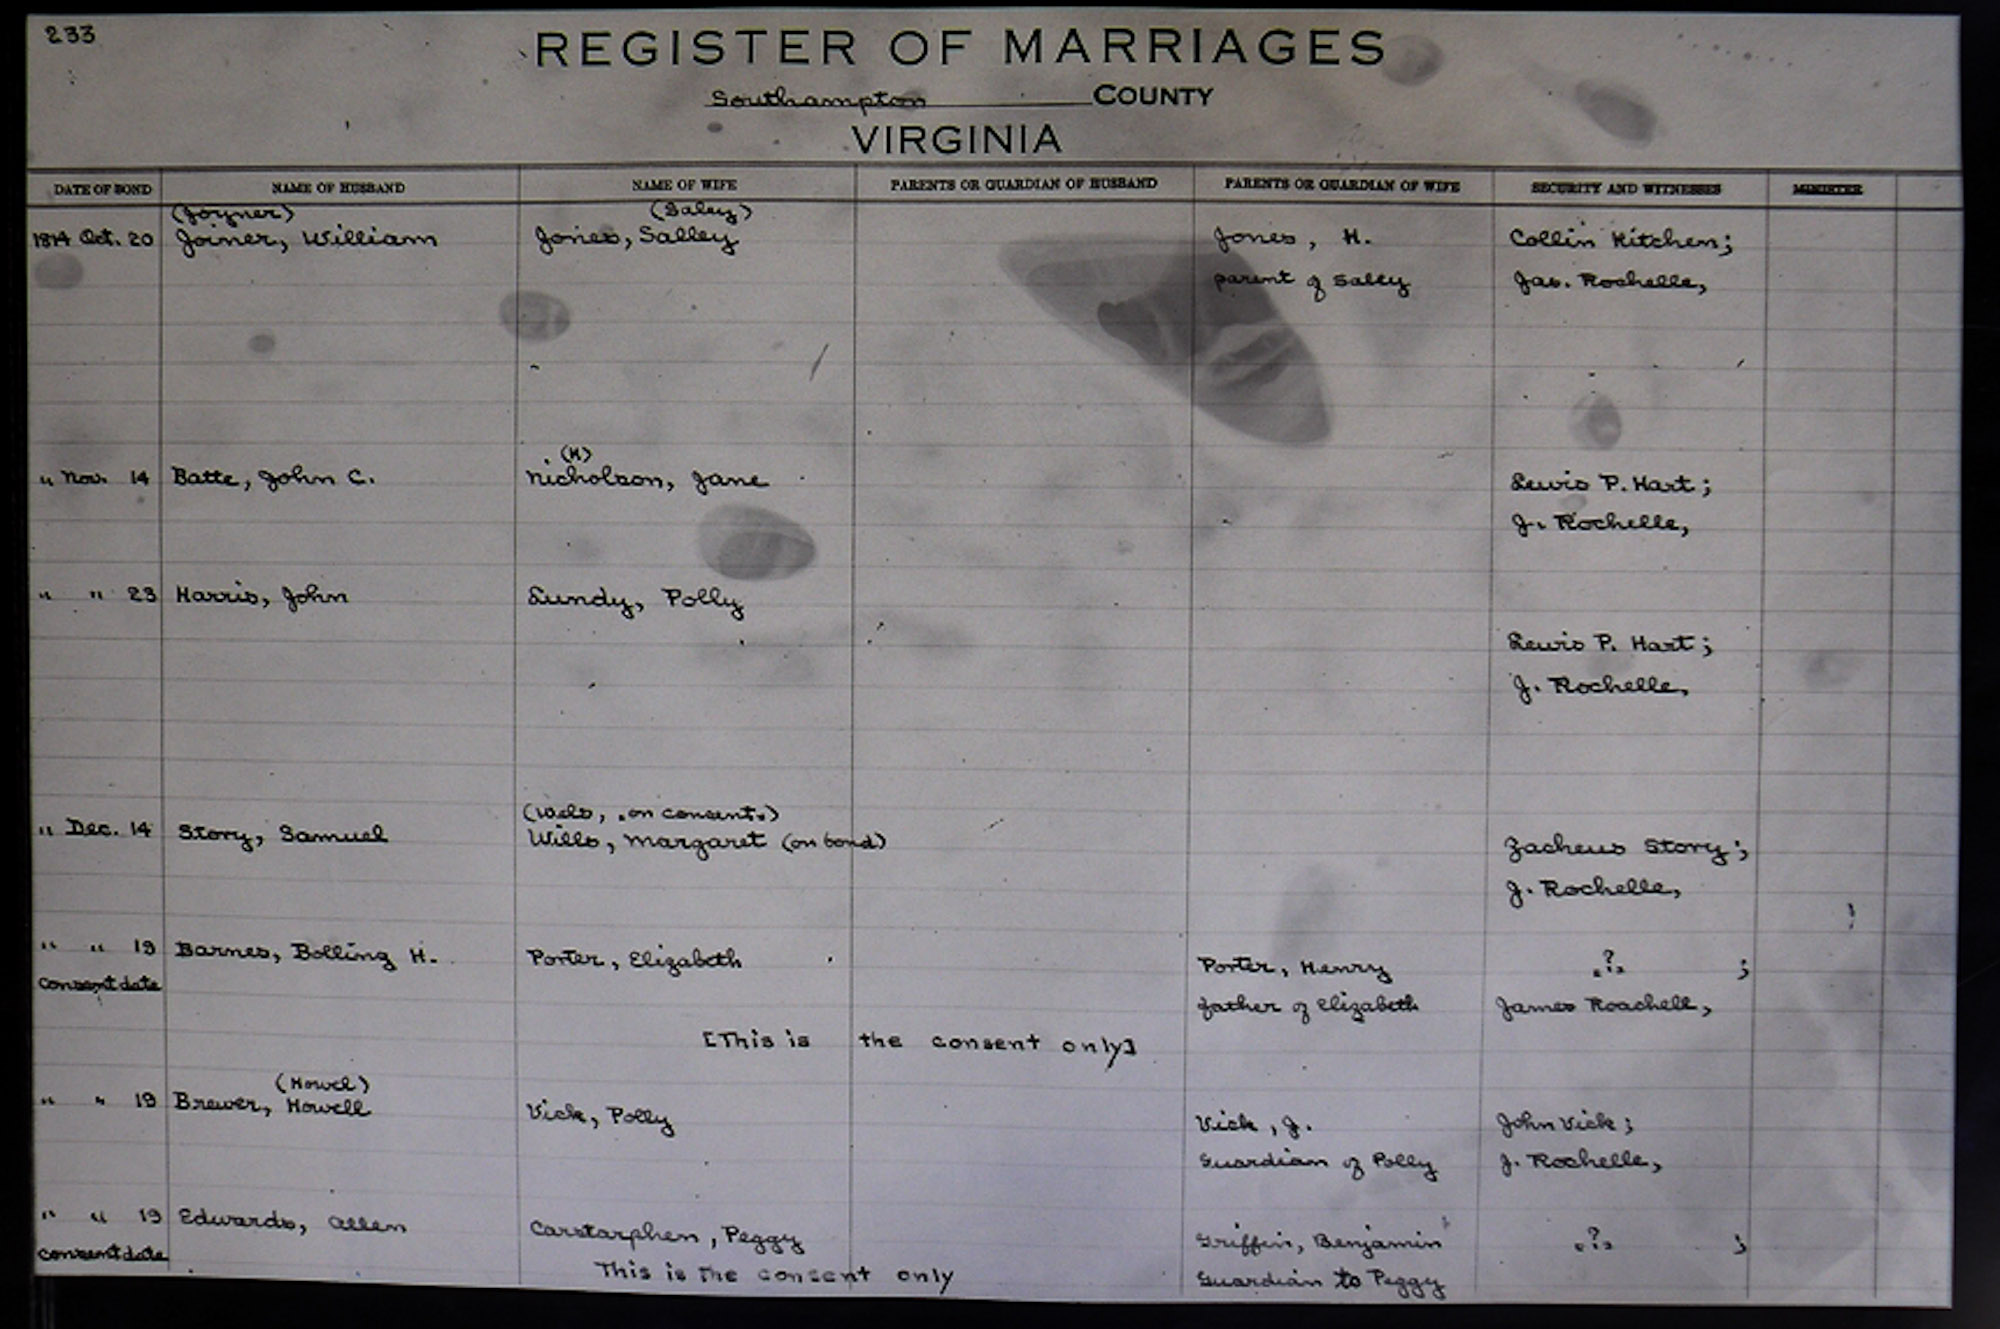 233
REGISTER OF MARRIAGES
Southampton COUNTY
VIRGINIA
DATE OF BOND NAME OF HUSBAND NAME OF WIFE PARENTS OR GUARDIAN OF HUSBAND PARENTS OR GUARDIAN OF WIFE SECURITY AND WITNESSES MINISTER
(Joyner) (Saley)
1814 Oct. 20 Joiner, William Jones, Salley Jones, H. Collin Kitchen;
parent of Salley Jas. Rochelle,
(K)
" Nov. 14 Batte, John C. Nicholson, Jane Lewis P. Hart;
J. Rochelle,
" " 23 Harris, John Lundy, Polly
Lewis P. Hart;
J. Rochelle,
(Wels, on consent.)
" Dec. 14 Story, Samuel Wills, Margaret (on bond) Zacheus Story;
J. Rochelle,
" " 19 Barnes, Bolling H. Porter, Elizabeth Porter, Henry "?" ;
consent date father of Elizabeth James Roachell,
[This is the consent only]
(Howel)
" " 19 Brewer, Howell Vick, Polly Vick, J. John Vick;
Guardian of Polly J. Rochelle,
" " 19 Edwards, Allen Carstarphen, Peggy Griffin, Benjamin "?" ;
consent date This is the consent only Guardian to Peggy